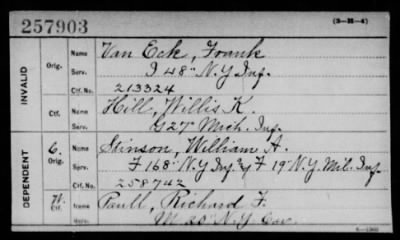 257903
(3-35-4)
INVALID
Orig.
Name Van Eck, Frank
Serv. I 48" N.Y. Inf.
Ctf. No. 213324
Ctf.
Name Hill, Willis K.
Serv. G 27 Mich. Inf.
DEPENDENT
C.
Orig.
Name Stinson, William A.
Serv. F 168" N.Y. Inf. & F 19" N.Y. Mil. Inf.
Ctf. No. 258742
W.
Ctf.
Name Paull, Richard F.
Serv. M 20" N.Y. Cav.